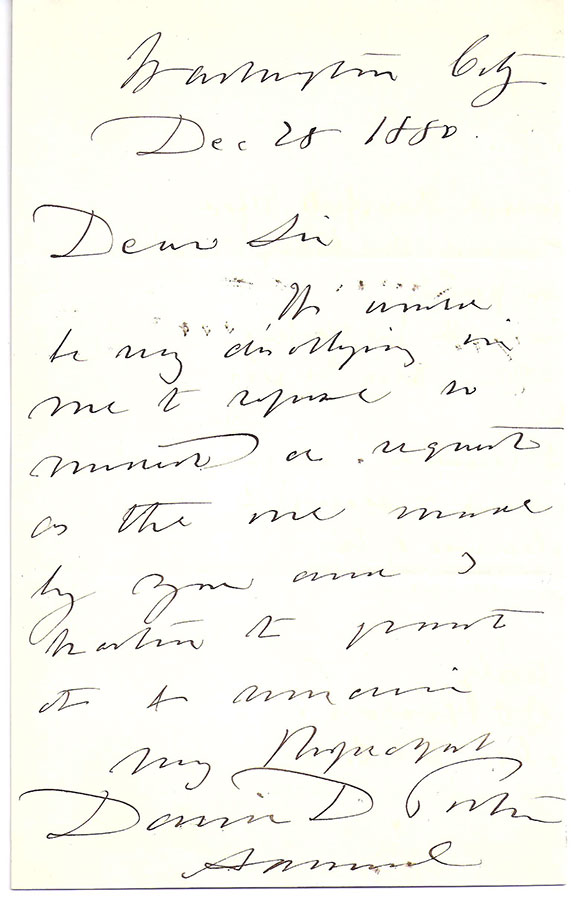 Washington City
Dec 28 1880.
Dear Sir
It would
be very disobliging in
me to refuse so
modest a request
as the one made
by you and I
hasten to grant
it & remain
very Respectfully
David D Porter
Admiral